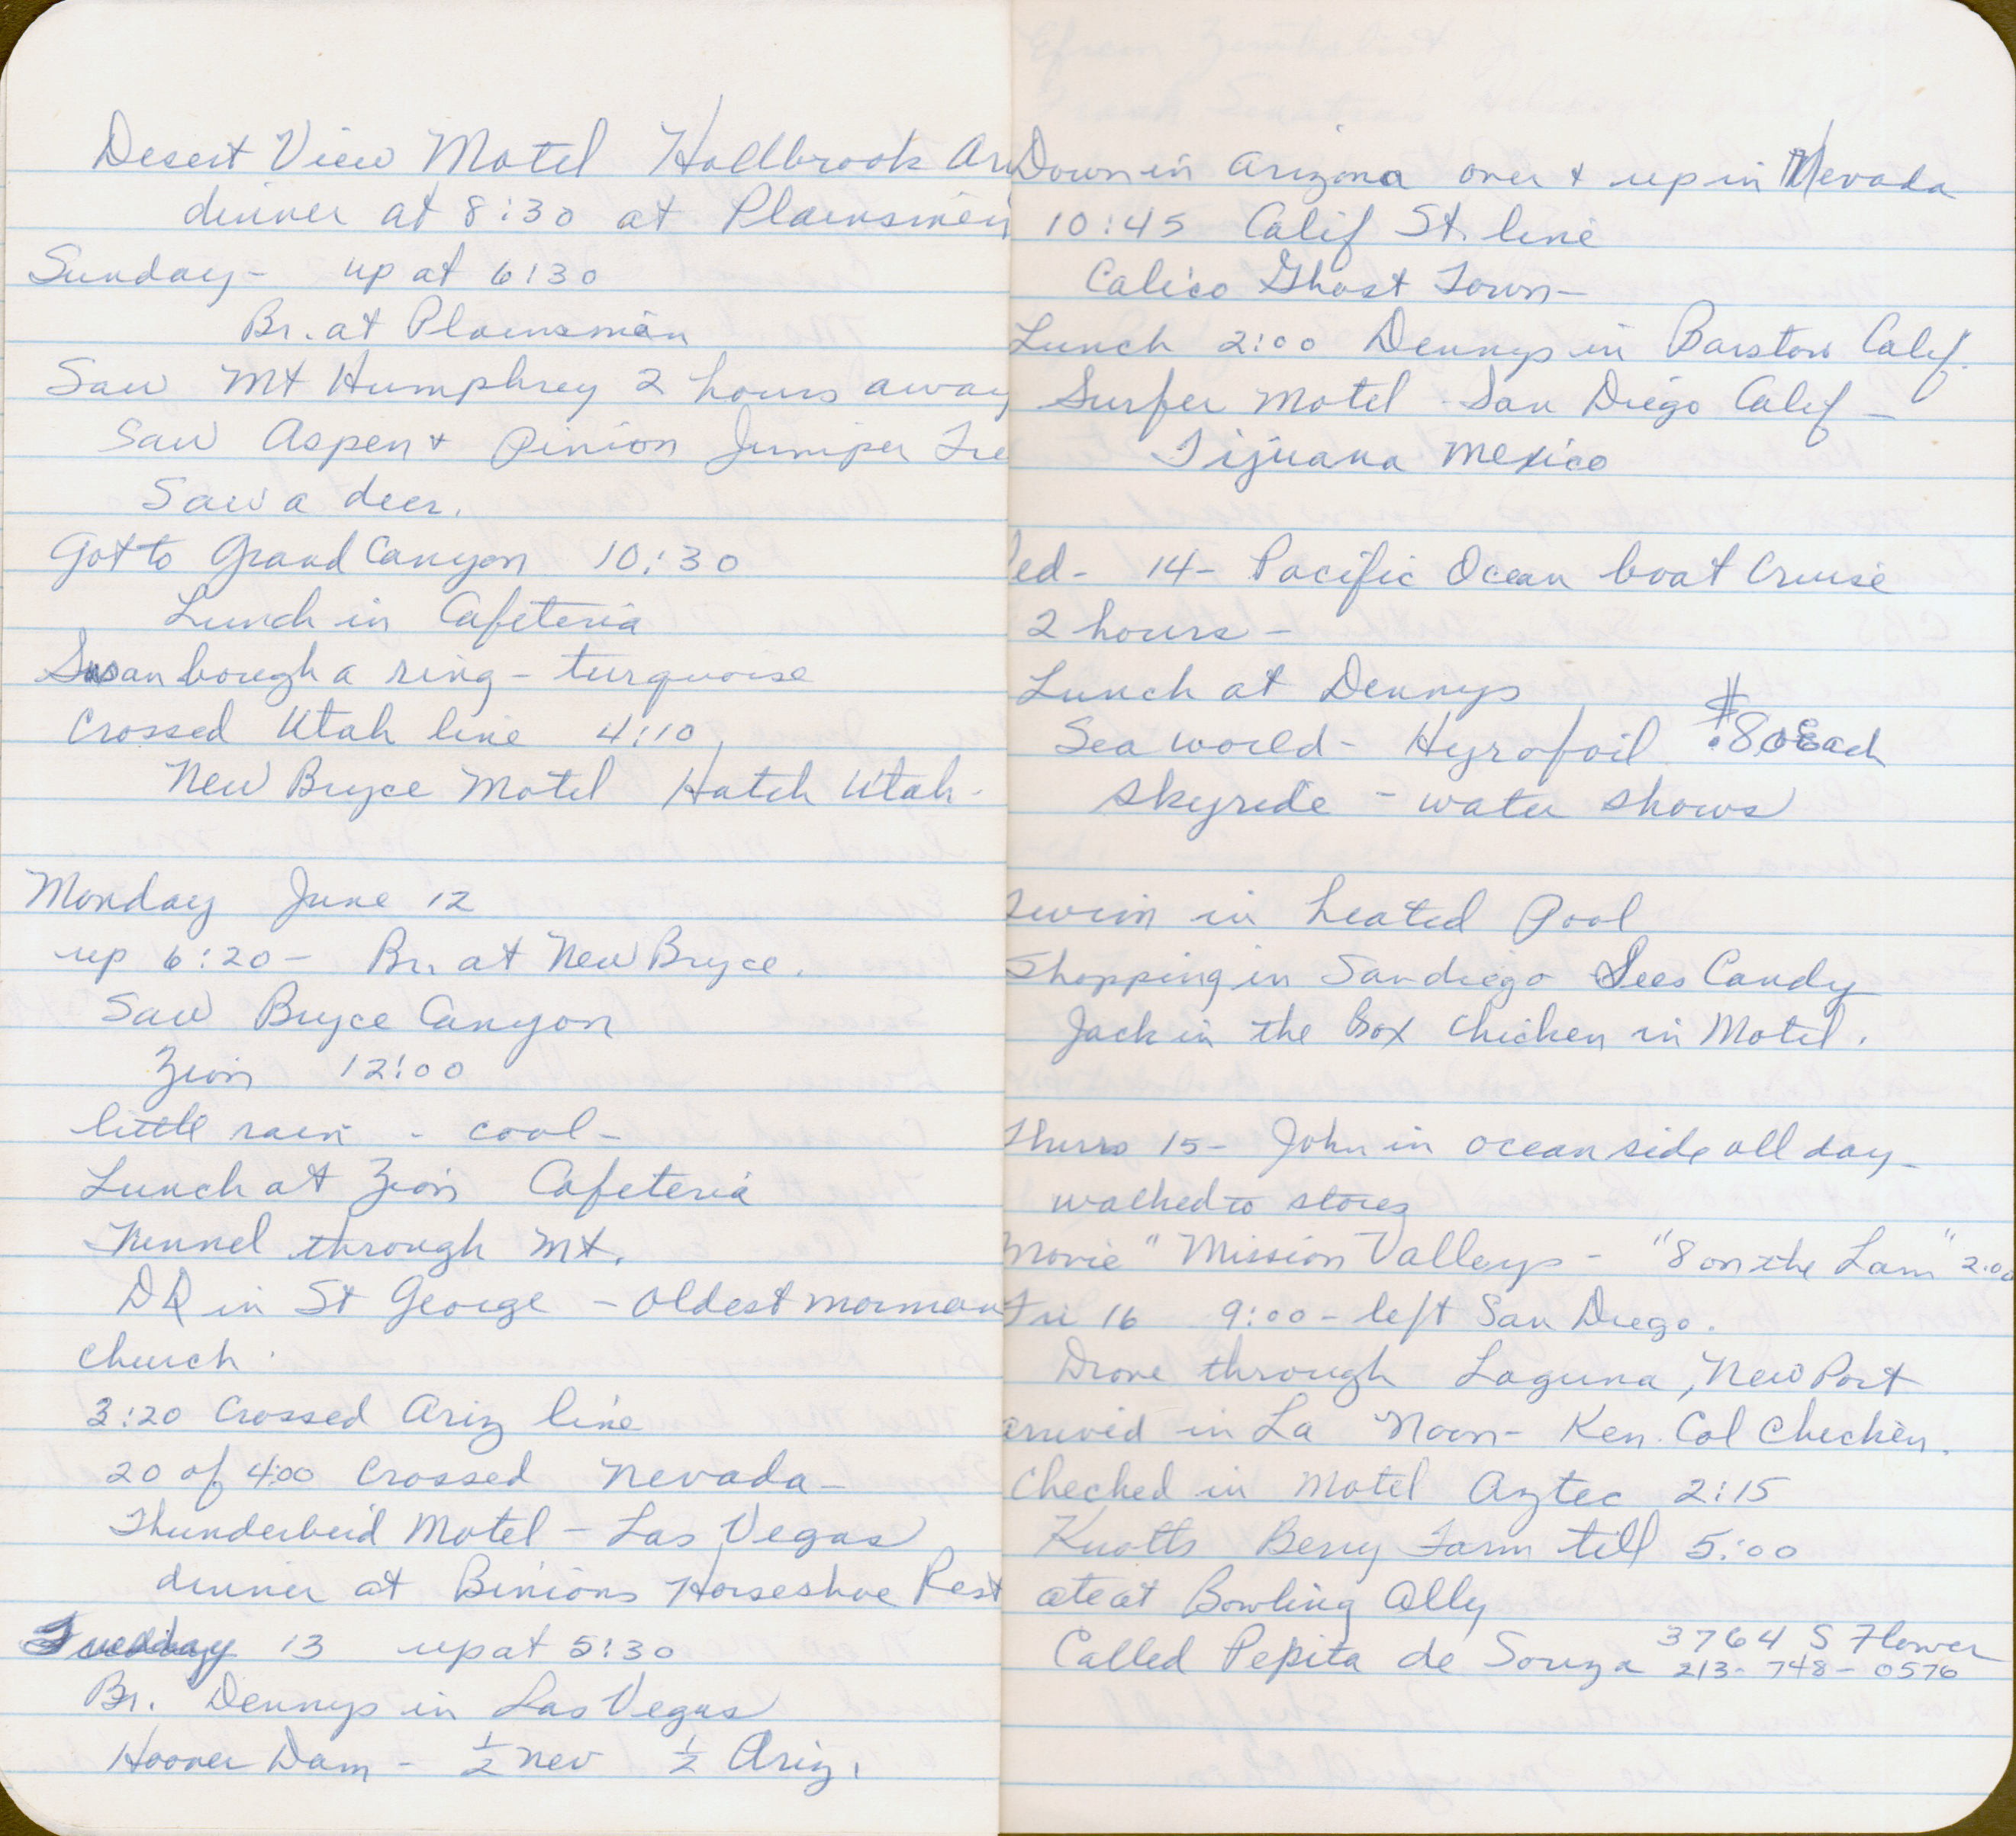 Desert View Motel Hollbrook Ari
dinner at 8:30 at Plainsmen
Sunday - up at 6:30
Br. at Plainsman
Saw Mt Humphrey 2 hours away
Saw Aspen + Pinion Juniper Tre
Saw a deer.
Got to Grand Canyon 10:30
Lunch in Cafeteria
Susan bough a ring - turquoise
Crossed Utah line 4:10
New Bryce Motel Hatch Utah.
Monday June 12
up 6:20 - Br. at New Bryce.
Saw Bryce Canyon
Zion 12:00
little rain - cool -
Lunch at Zion Cafeteria
Tunnel through Mt.
DQ in St George - oldest mormon
church.
3:20 Crossed Ariz line
20 of 4:00 Crossed Nevada -
Thunderbird Motel - Las Vegas
dinner at Binions Horseshoe Rest
Tuesday 13 up at 5:30
Br. Dennys in Las Vegas
Hoover Dam - ½ Nev ½ Ariz.
Down in Arizona over + up in Nevada
10:45 Calif St. line
Calico Ghost Town -
Lunch 2:00 Dennys in Barstow Calif.
Surfer Motel San Diego Calif -
Tijuana Mexico
Wed - 14 - Pacific Ocean boat Cruise
2 hours -
Lunch at Dennys
Sea world - Hyrofoil $.80 Each
skyride - water shows
swim in heated pool
Shopping in San diego Sees Candy
Jack in the Box Chicken in Motel.
Thurs 15 - John in ocean side all day -
walked to stores
Movie "Mission Valleys - "8 on the Lam" 2:00
Fri 16 9:00 - left San Diego.
Drove through Laguna, New Port
arrived in La Noon - Ken. Col Checkin.
Checked in Motel Aztec 2:15
Knotts Berry Farm till 5:00
ate at Bowling Ally
Called Pepita de Souza 3764 S Flower
213-748-0576